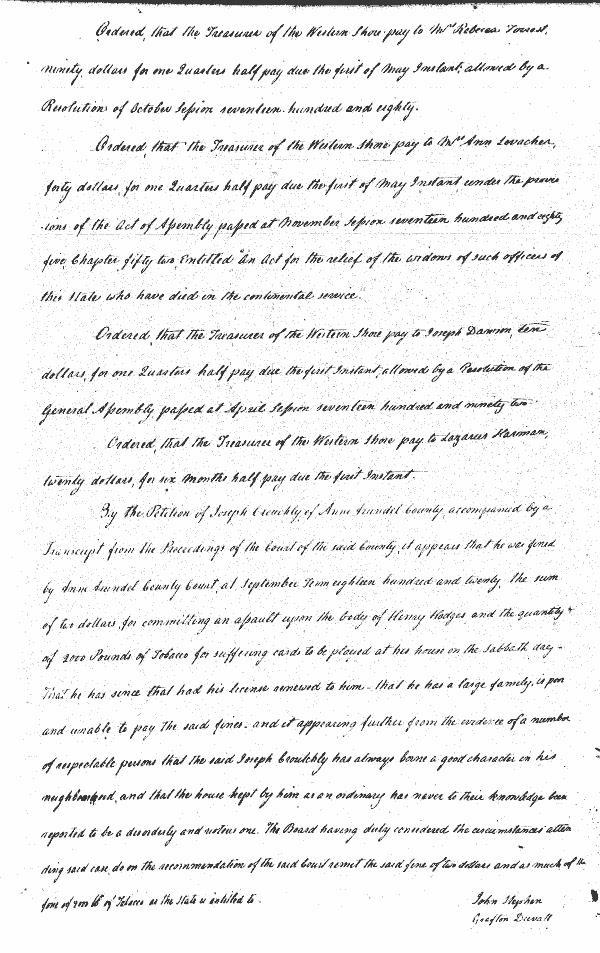 Ordered, that the Treasurer of the Western Shore pay to Mrs Rebecca Forrest,
ninety dollars for one Quarters half pay due the first of May Instant, allowed by a
Resolution of October Session seventeen hundred and eighty.
Ordered, that the Treasurer of the Western Shore pay to Mrs Ann Levacher,
forty dollars, for one Quarters half pay due the first of May Instant under the provis
ions of the Act of Assembly passed at November Session seventeen hundred and eighty
five Chapter fifty two, Entitled "An Act for the relief of the widows of such officers of
this State who have died in the continental service".
Ordered, that the Treasurer of the Western Shore pay to Joseph Dawson, ten
dollars, for one Quarters half pay due the first Instant, allowed by a Resolution of the
General Assembly passed at April Session seventeen hundred and ninety two
Ordered, that the Treasurer of the Western Shore pay to Lazarus Harman,
twenty dollars, for six months half pay due the first Instant.
By the Petition of Joseph Crouchly of Anne Arundel County, accompanied by a
Transcript from the Proceedings of the Court of the said County, it appears that he was fined
by Ann Arundel County Court, at September Term eighteen hundred and twenty, the sum
of two dollars, for committing an assault upon the body of Henry Hodges and the quantity
of 2000 Pounds of Tobacco for suffering cards to be played at his house on the Sabbath day -
That he has since that had his license renewed to him - that he has a large family, is poor
and unable to pay the said fines - and it appearing further from the evidence of a number
of respectable persons that the said Joseph Croutchly has always borne a good character in his
neighbourhood, and that the house kept by him as an ordinary has never to their knowledge been
reported to be a disorderly and riotous one. The Board having duly considered the circumstances atten
ding said case, do on the recommendation of the said Court remit the said fine of two dollars and as much of the
fine of 2000 lb of Tobacco as the State is entitled to.
John Stephen
Grafton Duvall